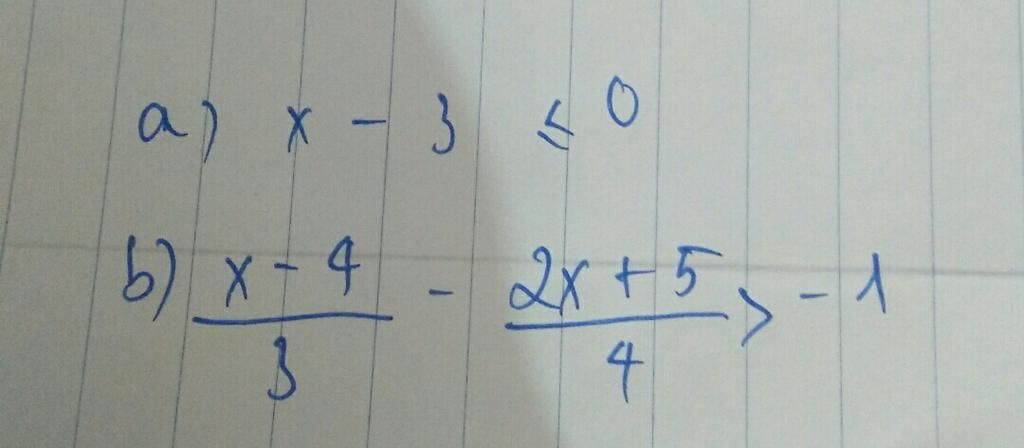 a) x - 3 ≤ 0
b) (x - 4)/3 - (2x + 5)/4 > - 1